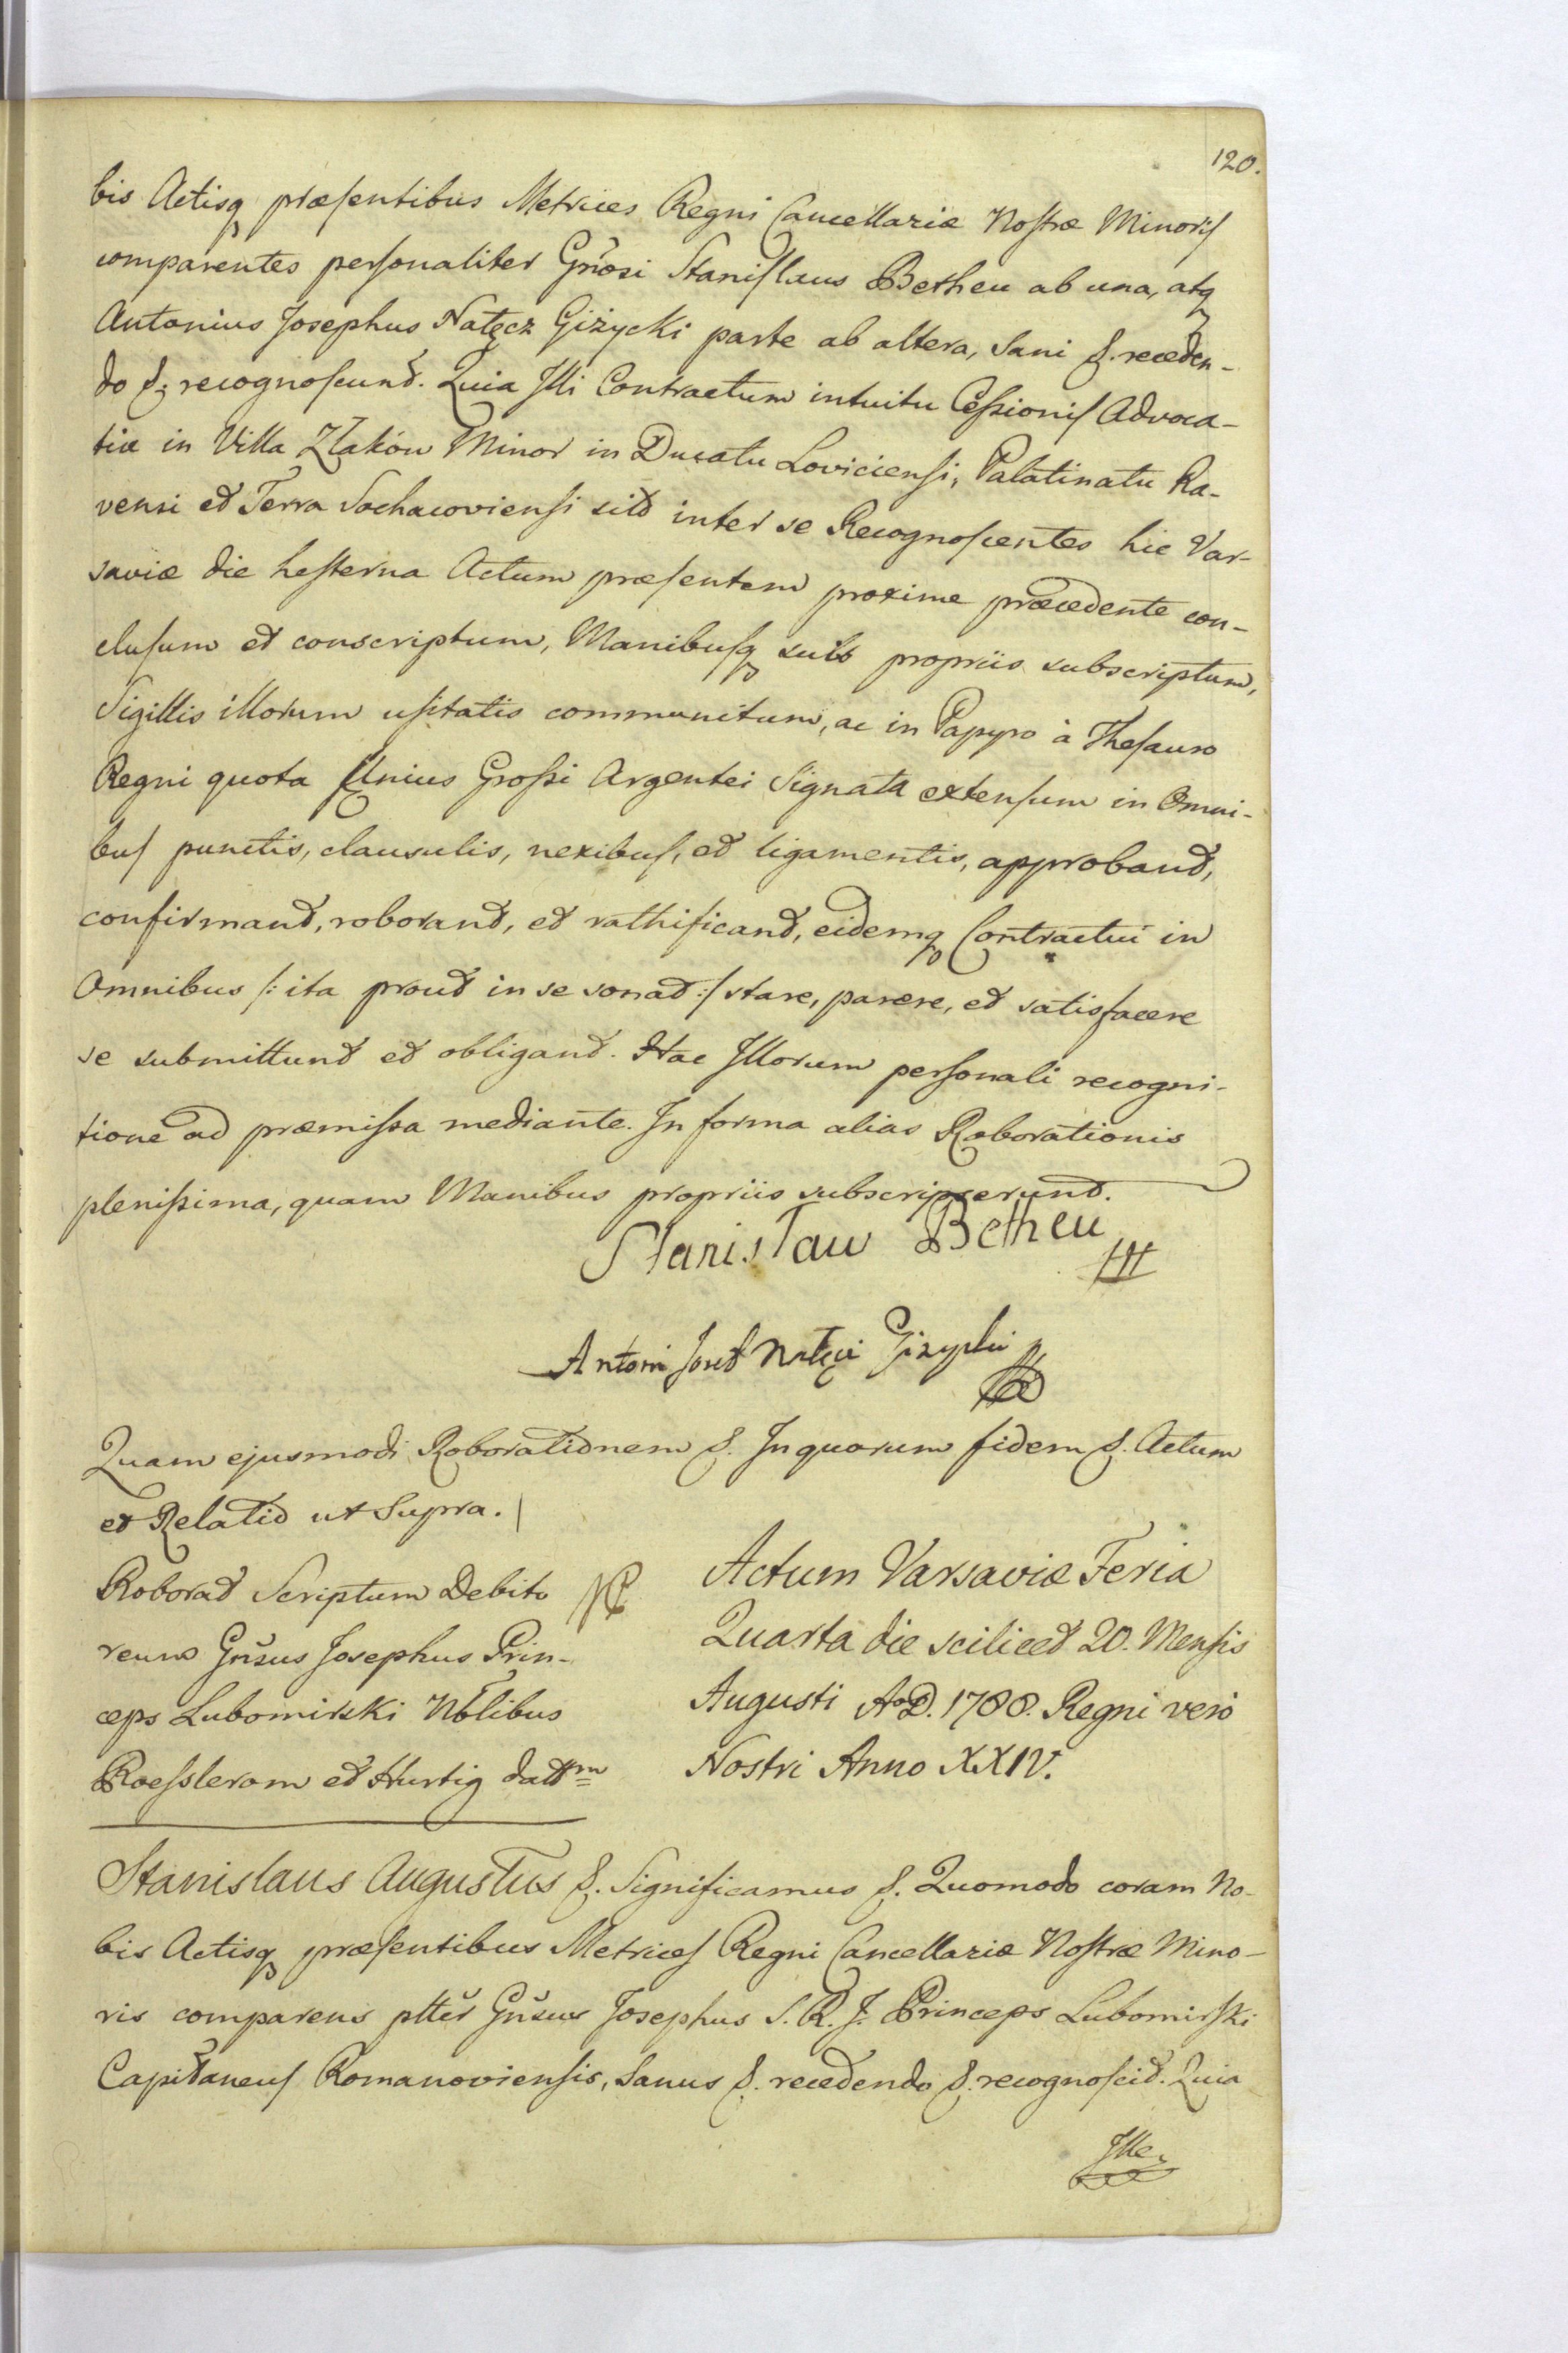 120.
bis Actisq præsentibus Metrices Regni Cancellariæ Nostræ Minoris
comparentes personaliter Gnosi Stanislaus Betheu ab una, atq
Antonius Josephus Nałęcz Giżycki parte ab altera, Sani &. receden-
do &. recognoscunt. Quia Illi Contractum intuitu Cessionis Advoca-
tiæ in Villa Zlaków Minor in Ducatu Loviciensi, Palatinatu Ra-
vensi et Terra Sochacoviensi sitæ inter se Recognoscentes hic Var-
saviæ die hesterna Actum præsentem proxime præcedente con-
clusum et conscriptum, Manibusq suis propriis subscriptum,
Sigillis illorum usitatis communitum, ac in Papyro à Thesauro
Regni quota Unius Grossi Argentei Signata extensum in Omni-
bus punctis, clausulis, nexibus, et ligamentis, approbant,
confirmant, roborant, et rathificant, eidemq Contractui in
Omnibus /: ita prout in se sonat :/ stare, parere, et satisfacere
se submittunt et obligant. Hac Illorum personali recogni-
tione ad præmissa mediante. In forma alias Roborationis
plenissima, quam Manibus propriis subscripserunt.
Stanisław Betheu
Antoni Josef Nałęcz Giżycki
Quam ejusmodi Roborationem &. In quorum fidem &. Actum
et Relatio ut Supra.
Roborat Scriptum Debito
reum Gnsus Josephus Prin-
ceps Lubomirski Nblibus
Roesslerom et Hurtig dattm
Actum Varsaviæ Feria
Quarta die scilicet 20. Mensis
Augusti A.D. 1788. Regni vero
Nostri Anno XXIV.
Stanislaus Augustus &. Significamus &. Quomodo coram No-
bis Actisq præsentibus Metrices Regni Cancellariæ Nostræ Mino-
ris comparens plter Gnsus Josephus S. R. J. Princeps Lubomirski
Capitaneus Romanoviensis, Sanus &. recedendo &. recognoscit. Quia
Ille